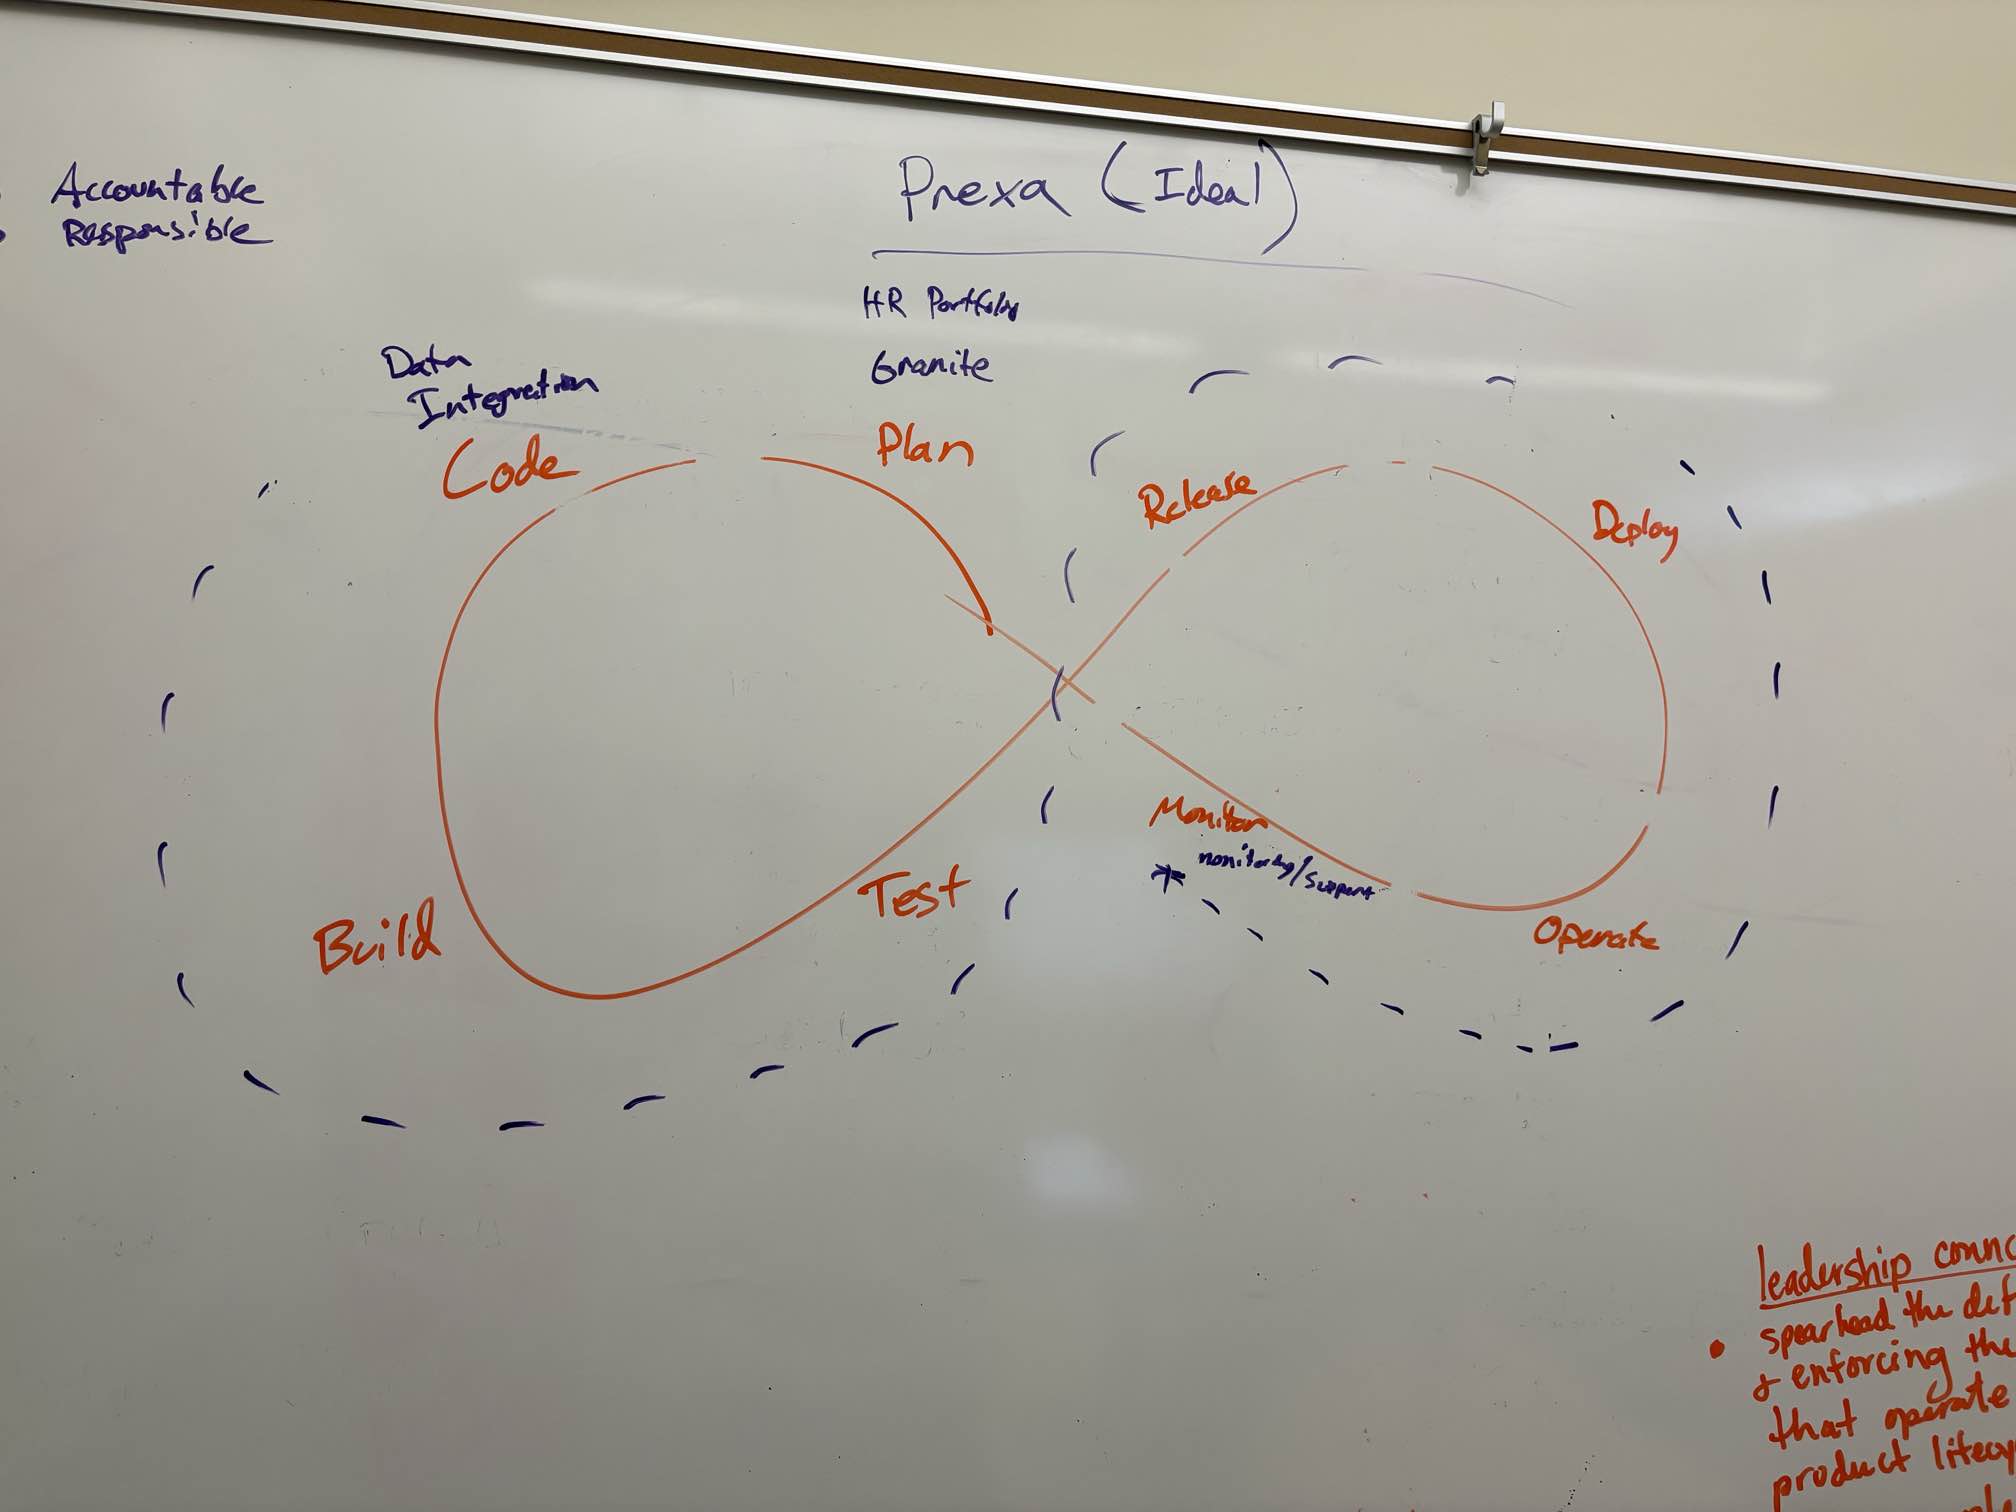 Accountable
Responsible
Prexa (Ideal)
HR Portfolio
Granite
Data
Integration
Code
Plan
Release
Deploy
Monitor
monitoring/support
Test
Build
Operate
leadership counc
• spearhead the def
& enforcing the
that operate
product lifecy